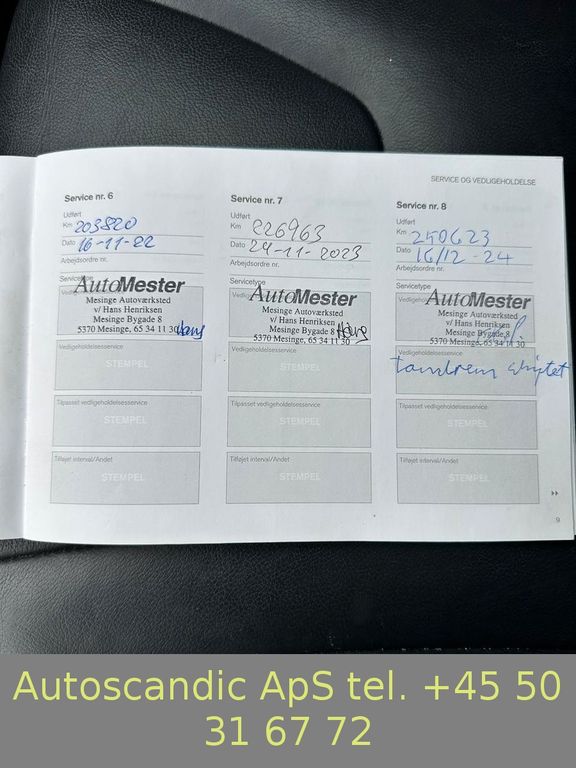 SERVICE OG VEDLIGEHOLDELSE
Service nr. 6
Udført
Km 203820
Dato 16-11-22
Arbejdsordre nr.
Servicetype
AutoMester
Mesinge Autoværksted
v/ Hans Henriksen
Mesinge Bygade 8
5370 Mesinge, 65 34 11 30 Hans
Vedligeholdelsesservice
STEMPEL
Tilpasset vedligeholdelsesservice
STEMPEL
Tilføjet interval/Andet
STEMPEL
Service nr. 7
Udført
Km 226963
Dato 24-11-2023
Arbejdsordre nr.
Servicetype
AutoMester
Mesinge Autoværksted
v/ Hans Henriksen
Mesinge Bygade 8 Hans
5370 Mesinge, 65 34 11 30
Vedligeholdelsesservice
STEMPEL
Tilpasset vedligeholdelsesservice
STEMPEL
Tilføjet interval/Andet
STEMPEL
Service nr. 8
Udført
Km 250623
Dato 16/12-24
Arbejdsordre nr.
Servicetype
AutoMester
Mesinge Autoværksted
v/ Hans Henriksen
Mesinge Bygade 8
5370 Mesinge, 65 34 11 30
Vedligeholdelsesservice
tandrem skiftet
Tilpasset vedligeholdelsesservice
STEMPEL
Tilføjet interval/Andet
STEMPEL
9
Autoscandic ApS tel. +45 50
31 67 72